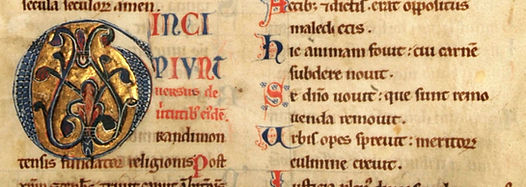 secula seculoꝝ amen.
INCI
PIVNT
uersus de
Grandimon
tensis fundator religionis Post
Actib; ⁊ dictis. erat oppositus
maledictis.
hic animam fouit: cui carnē
subdere nouit.
Se dn̄o uouit: que sunt remo
uenda remouit.
Urbis opes spreuit: meritoꝝ
culmine creuit.